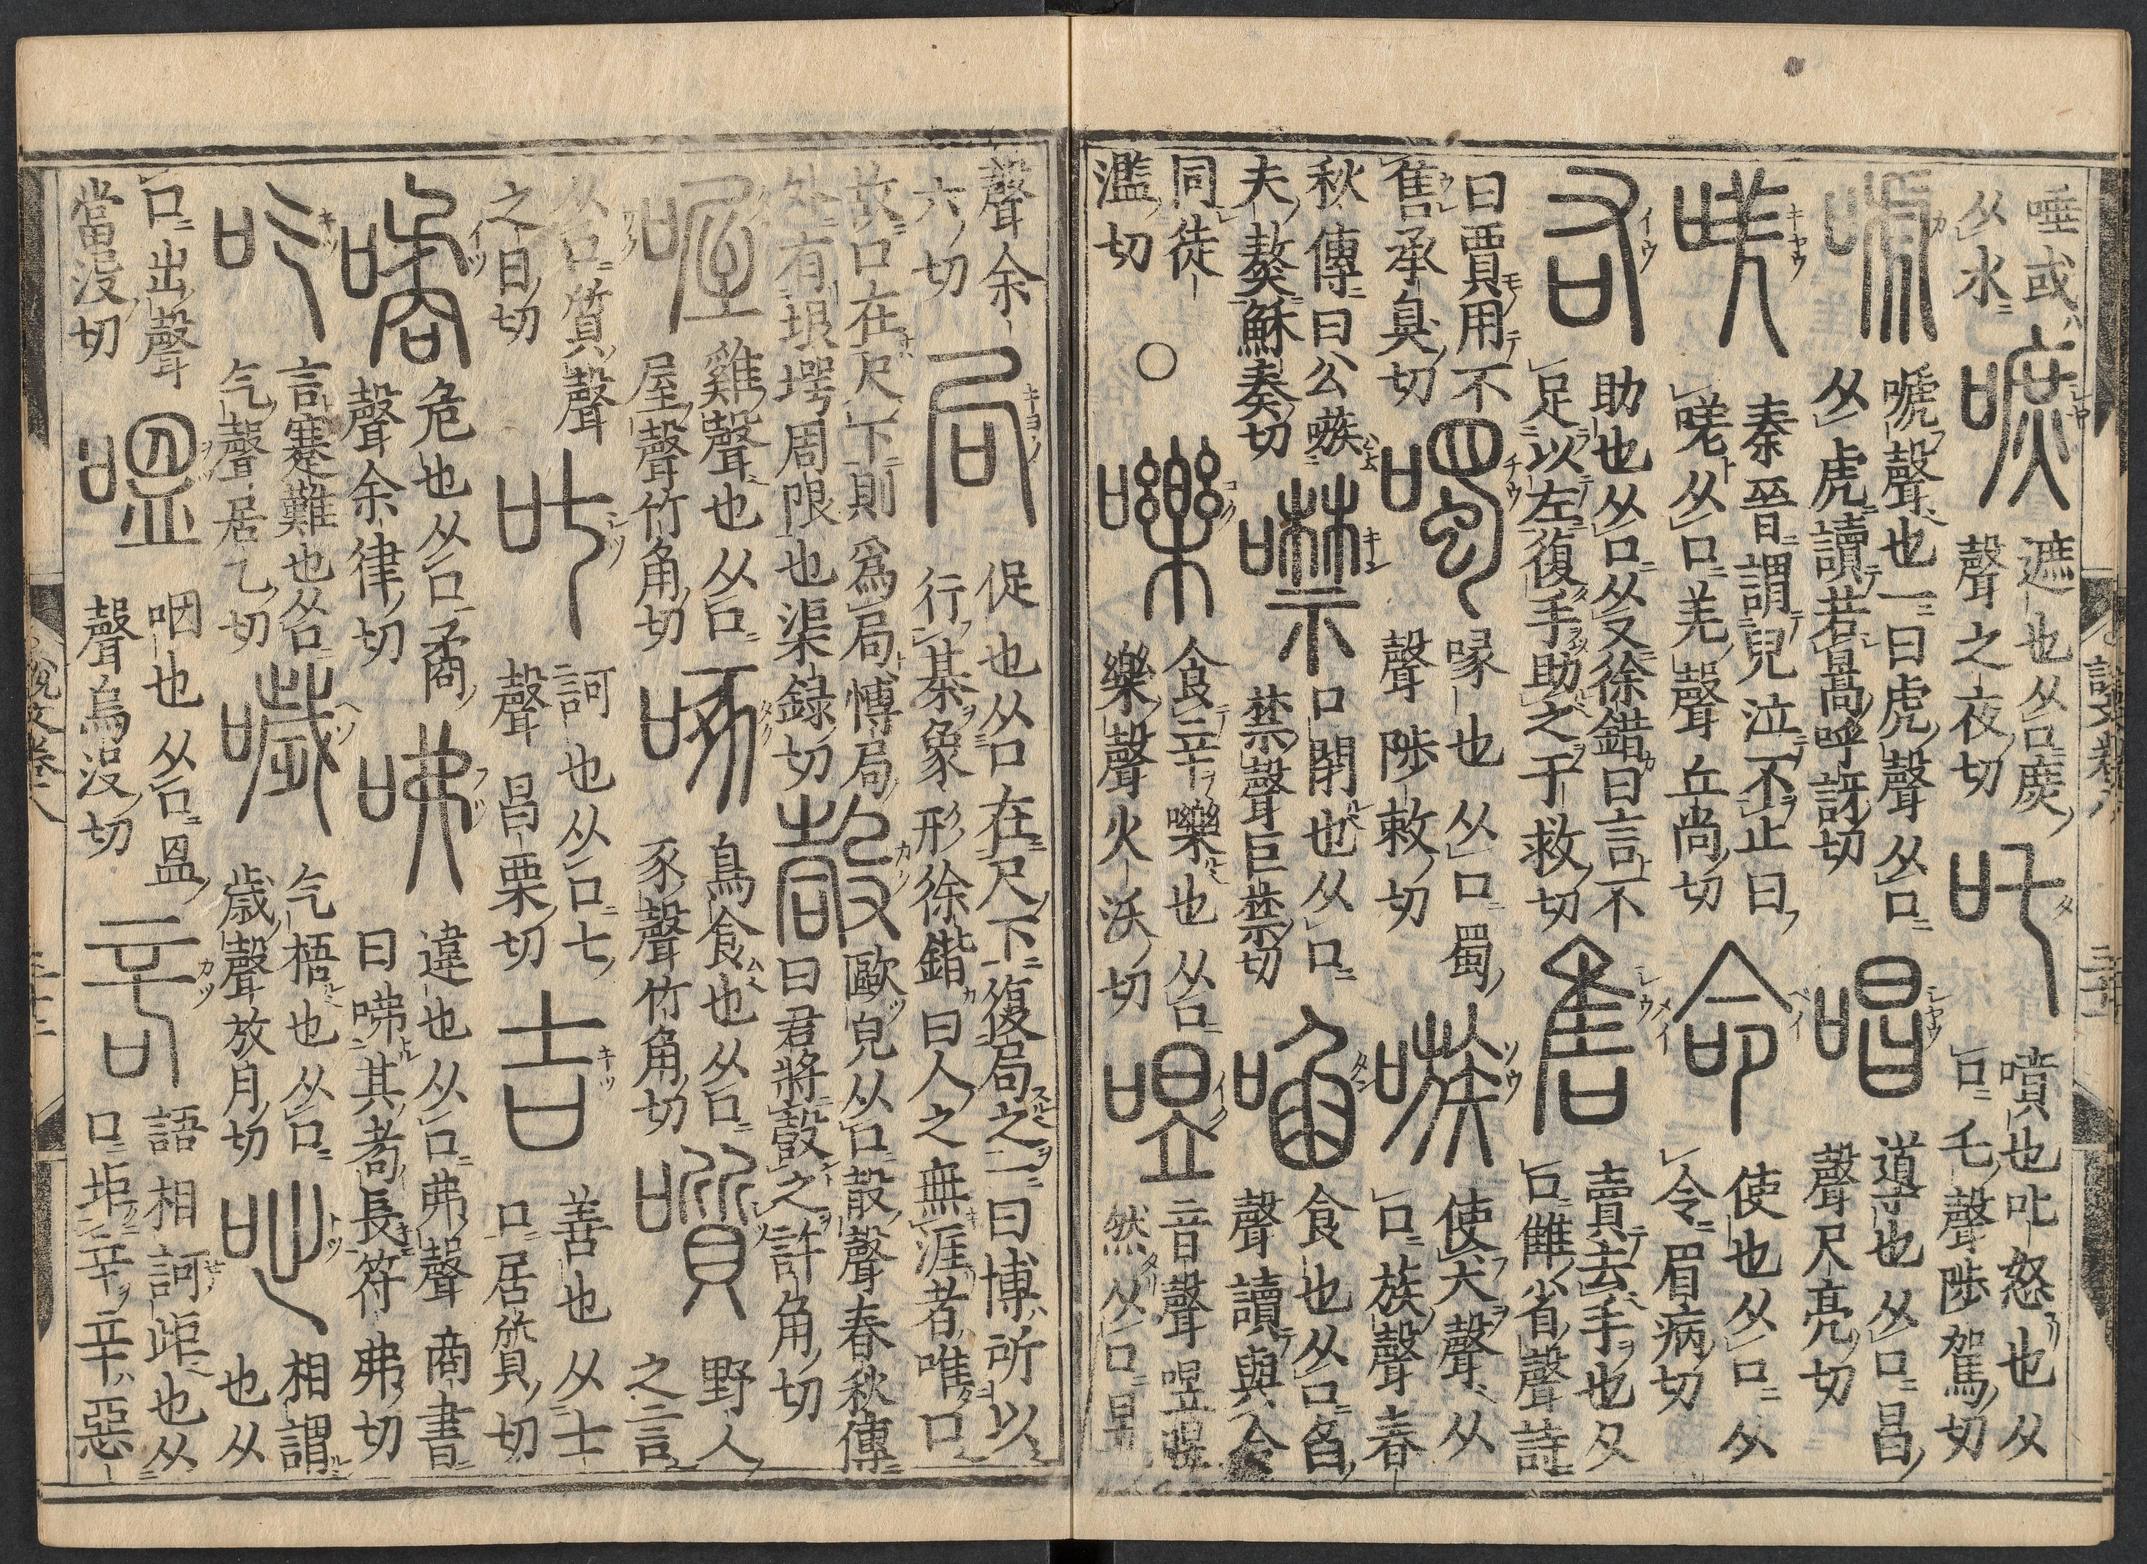 唾或
从水
嗻
遮也从口庶
聲之夜切
吒
噴也叱怒也从
口乇聲陟駕切
嗁聲也一曰虎聲从口
从虎讀若暠呼訝切
唱
導也从口昌
聲尺亮切
唴
秦晉謂兒泣不止曰
嗟从口羌聲丘尚切
命
使也从口从
令眉病切
右
助也从口从又徐錯曰言不
足以左復手助之于救切
售
賣去手也从
口雔省聲詩
曰賈用不
售承臭切
噣
喙也从口蜀
聲陟敕切
嗾
使犬聲从
口族聲春
秋傳曰公嗾
夫獒穌奏切
噤
口閉也从口
禁聲巨禁切
啗
食也从口臽
聲讀與含
同徒
濫切
○
嚛
食辛嚛也从口
樂聲火沃切
音聲
然从口
說文卷八
聲余
六切
局
促也从口在尺下復局之一曰博所以
行棊象形徐鍇曰人之無涯者唯口
故口在尺下則爲局博局
外有垠堮周限也渠録切
嗀
歐皃从口㱿聲春秋傳
曰君將嗀之許角切
喔
雞聲也从口
屋聲竹角切
啄
鳥食也从口
豖聲竹角切
嚽
野人
之言
从口質聲
之日切
叱
訶也从口七
聲昌栗切
吉
善也从士
口居質切
噊
危也从口矞
聲余律切
咈
違也从口弗聲商書
曰咈其耇長符弗切
吃
言蹇難也从口
气聲居乙切
噦
气牾也从口
歲聲放月切
咄
相謂
也从
口出聲
當沒切
嗢
咽也从口𥁕
聲烏沒切
語相訶歫也从
口歫䇂䇂惡
說文卷八
三十三